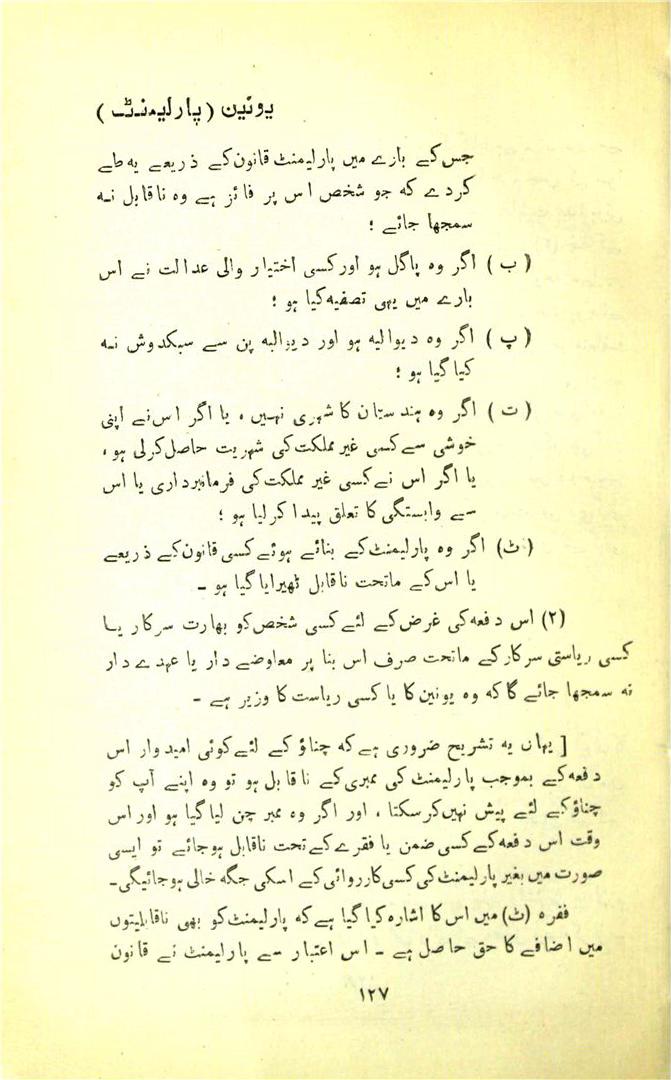 یونین ( پارلیمنٹ )
جس کے بارے میں پارلیمنٹ قانون کے ذریعے یہ طے
کردے کہ جو شخص اس پر فائز ہے وہ ناقابل نہ
سمجھا جائے ؛
( ب ) اگر وہ پاگل ہو اور کسی اختیار والی عدالت نے اس
بارے میں یہی تصفیہ کیا ہو ؛
( پ ) اگر وہ دیوالیہ ہو اور دیوالیہ پن سے سبکدوش نہ
کیا گیا ہو ؛
( ت ) اگر وہ ہندستان کا شہری نہیں ، یا اگر اس نے اپنی
خوشی سے کسی غیر مملکت کی شہریت حاصل کرلی ہو ،
یا اگر اس نے کسی غیر مملکت کی فرمانبرداری یا اس
سے وابستگی کا تعلق پیدا کرلیا ہو ؛
( ٹ ) اگر وہ پارلیمنٹ کے بنائے ہوئے کسی قانون کے ذریعے
یا اس کے ماتحت ناقابل ٹھیرایا گیا ہو ۔
(۲) اس دفعہ کی غرض کے لئے کسی شخص کو بھارت سرکار یا
کسی ریاستی سرکار کے ماتحت صرف اس بنا پر معاوضے دار یا عہدے دار
نہ سمجھا جائے گا کہ وہ یونین کا یا کسی ریاست کا وزیر ہے ۔
[ یہاں یہ تشریح ضروری ہے کہ چناؤ کے لئے کوئی امیدوار اس
دفعہ کے بموجب پارلیمنٹ کی ممبری کے ناقابل ہو تو وہ اپنے آپ کو
چناؤ کے لئے پیش نہیں کرسکتا ، اور اگر وہ ممبر چن لیا گیا ہو اور اس
وقت اس دفعہ کے کسی ضمن یا فقرے کے تحت ناقابل ہوجائے تو ایسی
صورت میں بغیر پارلیمنٹ کی کسی کارروائی کے اسکی جگہ خالی ہوجائیگی۔
فقرہ (ٹ) میں اس کا اشارہ کیا گیا ہے کہ پارلیمنٹ کو بھی ناقابلیتوں
میں اضافے کا حق حاصل ہے ۔ اس اعتبار سے پارلیمنٹ نے قانون
۱۲۷